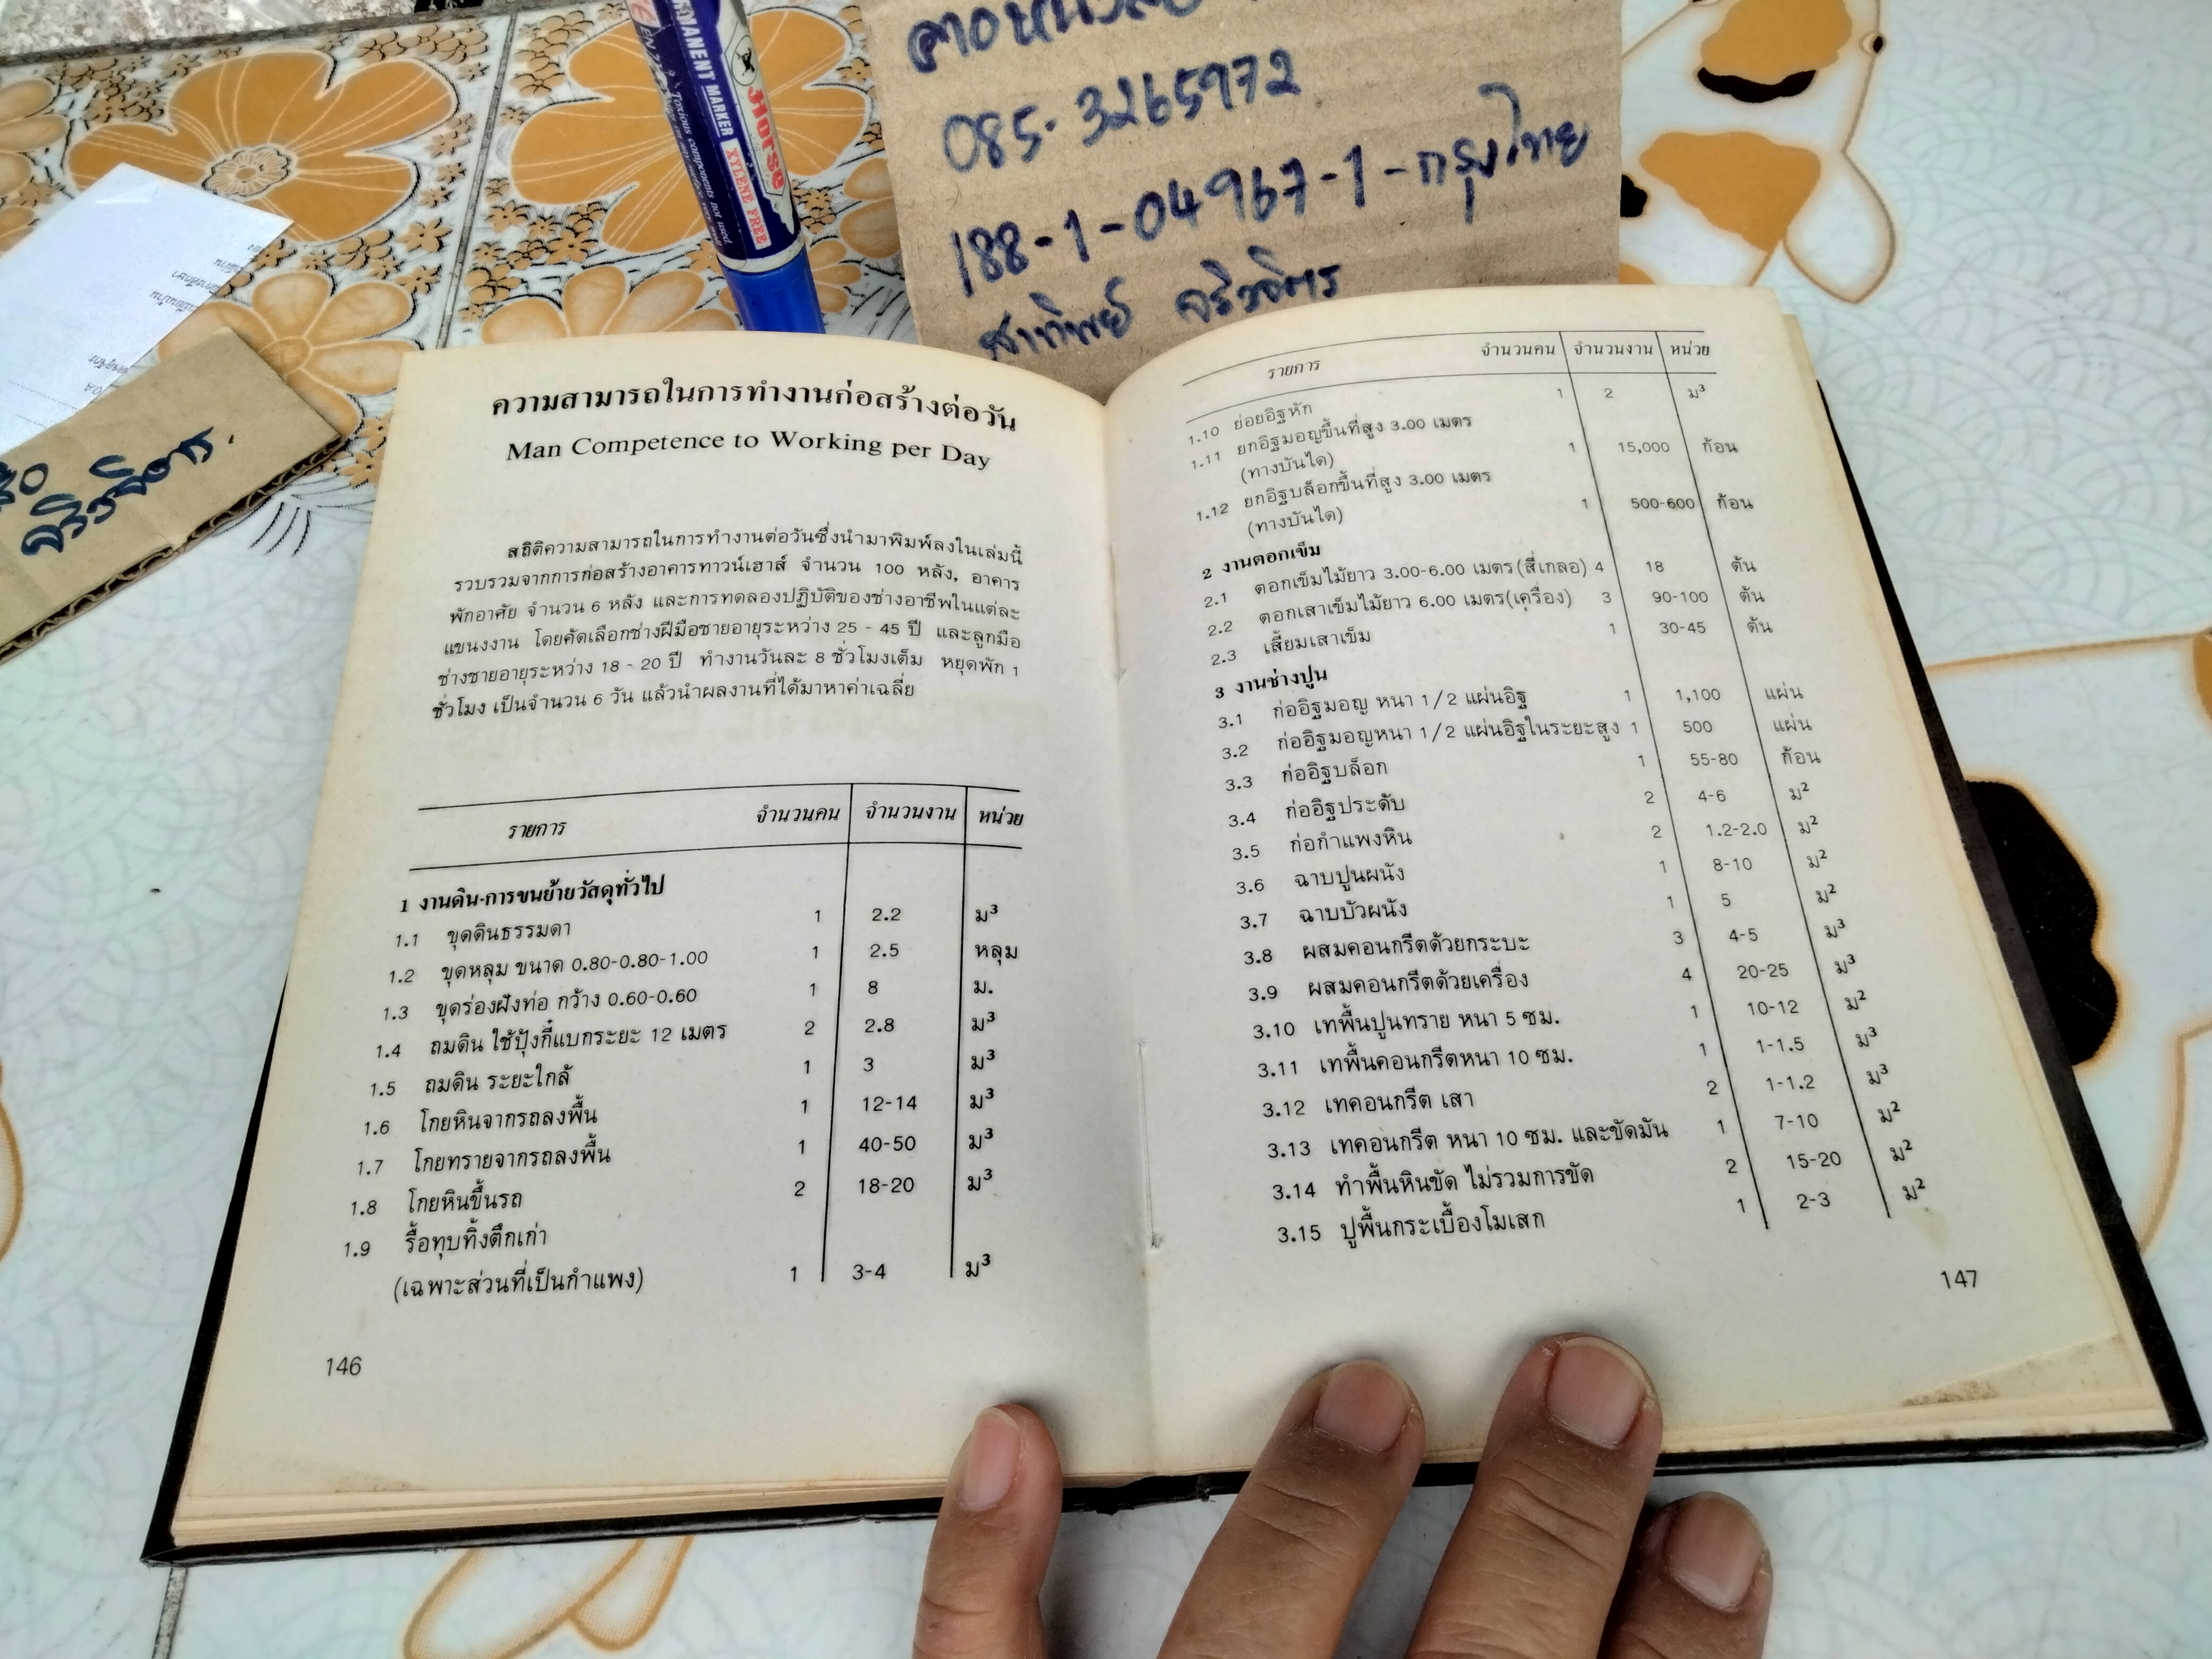 085-3265972
188-1-04967-1-กรุงไทย
สาทิพย์ จริวจิตร
PERMANENT MARKER XYLENE FREE
Horse
Toxious components not used.
ความสามารถในการทำงานก่อสร้างต่อวัน
Man Competence to Working per Day
สถิติความสามารถในการทำงานต่อวันซึ่งนำมาพิมพ์ลงในเล่มนี้
รวบรวมจากการก่อสร้างอาคารทาวน์เฮาส์ จำนวน 100 หลัง, อาคาร
พักอาศัย จำนวน 6 หลัง และการทดลองปฏิบัติของช่างอาชีพในแต่ละ
แขนงงาน โดยคัดเลือกช่างฝีมือชายอายุระหว่าง 25 - 45 ปี และลูกมือ
ช่างชายอายุระหว่าง 18 - 20 ปี ทำงานวันละ 8 ชั่วโมงเต็ม หยุดพัก 1
ชั่วโมง เป็นจำนวน 6 วัน แล้วนำผลงานที่ได้มาหาค่าเฉลี่ย
รายการ จำนวนคน จำนวนงาน หน่วย
1 งานดิน-การขนย้ายวัสดุทั่วไป
1.1 ขุดดินธรรมดา 1 2.2 ม³
1.2 ขุดหลุม ขนาด 0.80-0.80-1.00 1 2.5 หลุม
1.3 ขุดร่องฝังท่อ กว้าง 0.60-0.60 1 8 ม.
1.4 ถมดิน ใช้ปุ้งกี๋แบกระยะ 12 เมตร 2 2.8 ม³
1.5 ถมดิน ระยะใกล้ 1 3 ม³
1.6 โกยหินจากรถลงพื้น 1 12-14 ม³
1.7 โกยทรายจากรถลงพื้น 1 40-50 ม³
1.8 โกยหินขึ้นรถ 2 18-20 ม³
1.9 รื้อทุบทิ้งตึกเก่า
(เฉพาะส่วนที่เป็นกำแพง) 1 3-4 ม³
146
รายการ จำนวนคน จำนวนงาน หน่วย
1.10 ย่อยอิฐหัก 1 2 ม³
1.11 ยกอิฐมอญขึ้นที่สูง 3.00 เมตร
(ทางบันได) 1 15,000 ก้อน
1.12 ยกอิฐบล็อกขึ้นที่สูง 3.00 เมตร
(ทางบันได) 1 500-600 ก้อน
2 งานตอกเข็ม
2.1 ตอกเข็มไม้ยาว 3.00-6.00 เมตร(สี่เกลอ) 4 18 ต้น
2.2 ตอกเสาเข็มไม้ยาว 6.00 เมตร(เครื่อง) 3 90-100 ต้น
2.3 เสี้ยมเสาเข็ม 1 30-45 ต้น
3 งานช่างปูน
3.1 ก่ออิฐมอญ หนา 1/2 แผ่นอิฐ 1 1,100 แผ่น
3.2 ก่ออิฐมอญหนา 1/2 แผ่นอิฐในระยะสูง 1 500 แผ่น
3.3 ก่ออิฐบล็อก 1 55-80 ก้อน
3.4 ก่ออิฐประดับ 2 4-6 ม²
3.5 ก่อกำแพงหิน 2 1.2-2.0 ม²
3.6 ฉาบปูนผนัง 1 8-10 ม²
3.7 ฉาบบัวผนัง 1 5 ม²
3.8 ผสมคอนกรีตด้วยกระบะ 3 4-5 ม³
3.9 ผสมคอนกรีตด้วยเครื่อง 4 20-25 ม³
3.10 เทพื้นปูนทราย หนา 5 ซม. 1 10-12 ม²
3.11 เทพื้นคอนกรีตหนา 10 ซม. 1 1-1.5 ม³
3.12 เทคอนกรีต เสา 2 1-1.2 ม³
3.13 เทคอนกรีต หนา 10 ซม. และขัดมัน 1 7-10 ม²
3.14 ทำพื้นหินขัด ไม่รวมการขัด 2 15-20 ม²
3.15 ปูพื้นกระเบื้องโมเสก 1 2-3 ม²
147